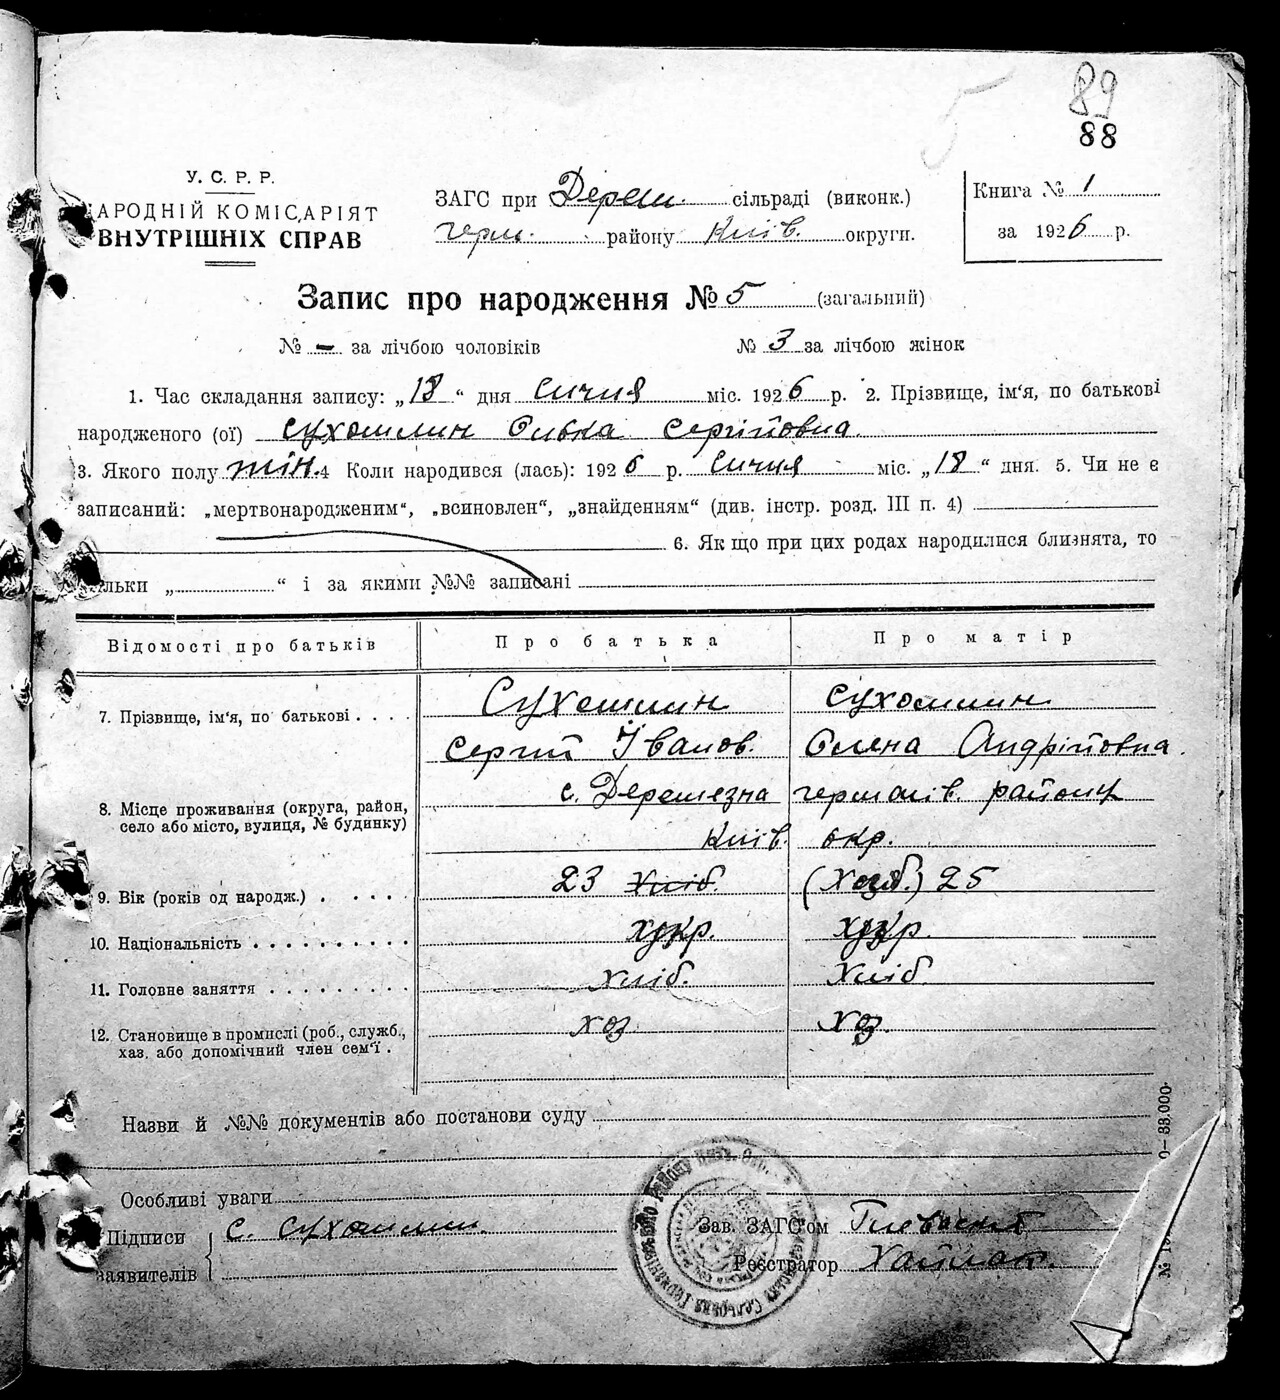 5
89
88
У. С. Р. Р.
АРОДНІЙ КОМІСАРІЯТ
ВНУТРІШНІХ СПРАВ
ЗАГС при Дереш. сільраді (виконк.)
герм. району Київ. округи.
Книга № 1
за 1926 р.
Запис про народження № 5 (загальний)
№ – за лічбою чоловіків № 3 за лічбою жінок
1. Час складання запису: „18“ дня Січня міс. 1926 р. 2. Прізвище, ім'я, по батькові
народженого (ої) Сухомлин Олька Сергійовна
3. Якого полу жін. 4 Коли народився (лась): 1926 р. Січня міс. „18“ дня. 5. Чи не є
записаний: „мертвонародженим“, „всиновлен“, „знайденням“ (див. інстр. розд. III п. 4)
6. Як що при цих родах народилися близнята, то
ільки „ “ і за якими №№ записані
Відомості про батьків Про батька Про матір
7. Прізвище, ім'я, по батькові . . . . Сухомлин Сухомлин
Сергій Іванов. Олена Андрійовна
8. Місце проживання (округа, район, село або місто, вулиця, № будинку) с. Деремезна германів. району
Київ. окр.
9. Вік (років од народж.) . . . . . 23 Хліб. (Хозя.) 25
10. Національність . . . . . . . . . . укр. укр.
11. Головне заняття . . . . . . . . . Хліб. Хліб.
12. Становище в промислі (роб., служб., хаз. або допомічний член сем'ї . хоз. хоз.
Назви й №№ документів або постанови суду
Особливі уваги
Підписи С. Сухомлин Зав. ЗАГС'ом
заявителів Реєстратор
0—33.000